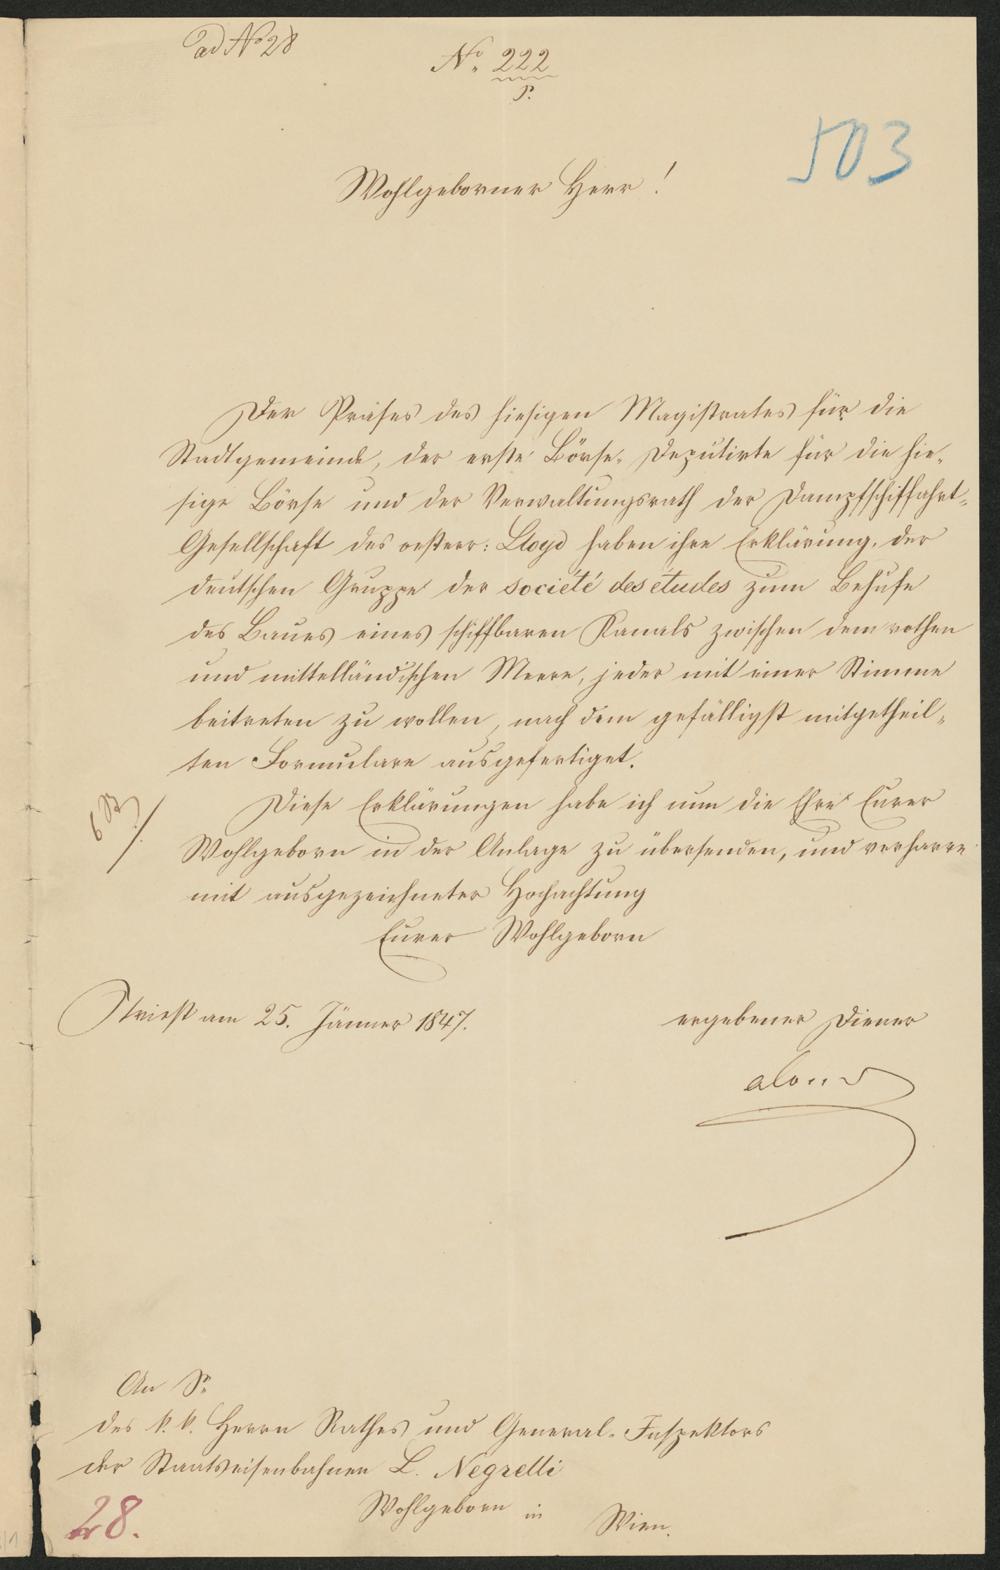 ad No 28
No. 222
P.
503
Wohlgeborner Herr!
Der Präses des hiesigen Magistrates für die
Stadtgemeinde, der erste Börse-Deputirte für die hie-
sige Börse und der Verwaltungsrath der Dampfschiffahrt-
Gesellschaft des oesterr: Lloyd haben ihre Erklärung, der
deutschen Gruppe der société des études zum Behufe
des Baues eines schiffbaren Kanals zwischen dem rothen
und mittelländischen Meere, jeder mit einer Stimme
beitreten zu wollen, nach dem gefälligst mitgetheil-
ten Formulare ausgefertiget.
Diese Erklärungen habe ich nun die Ehre Eurer
Wohlgeborn in der Anlage zu übersenden, und verharre
mit ausgezeichneter Hochachtung
Eurer Wohlgeborn
Triest am 25. Jänner 1847.
ergebener Diener
An Sr
des k. k. Herrn Rathes und General-Inspektors
der Staatseisenbahnen L. Negrelli
Wohlgeborn in Wien.
28.